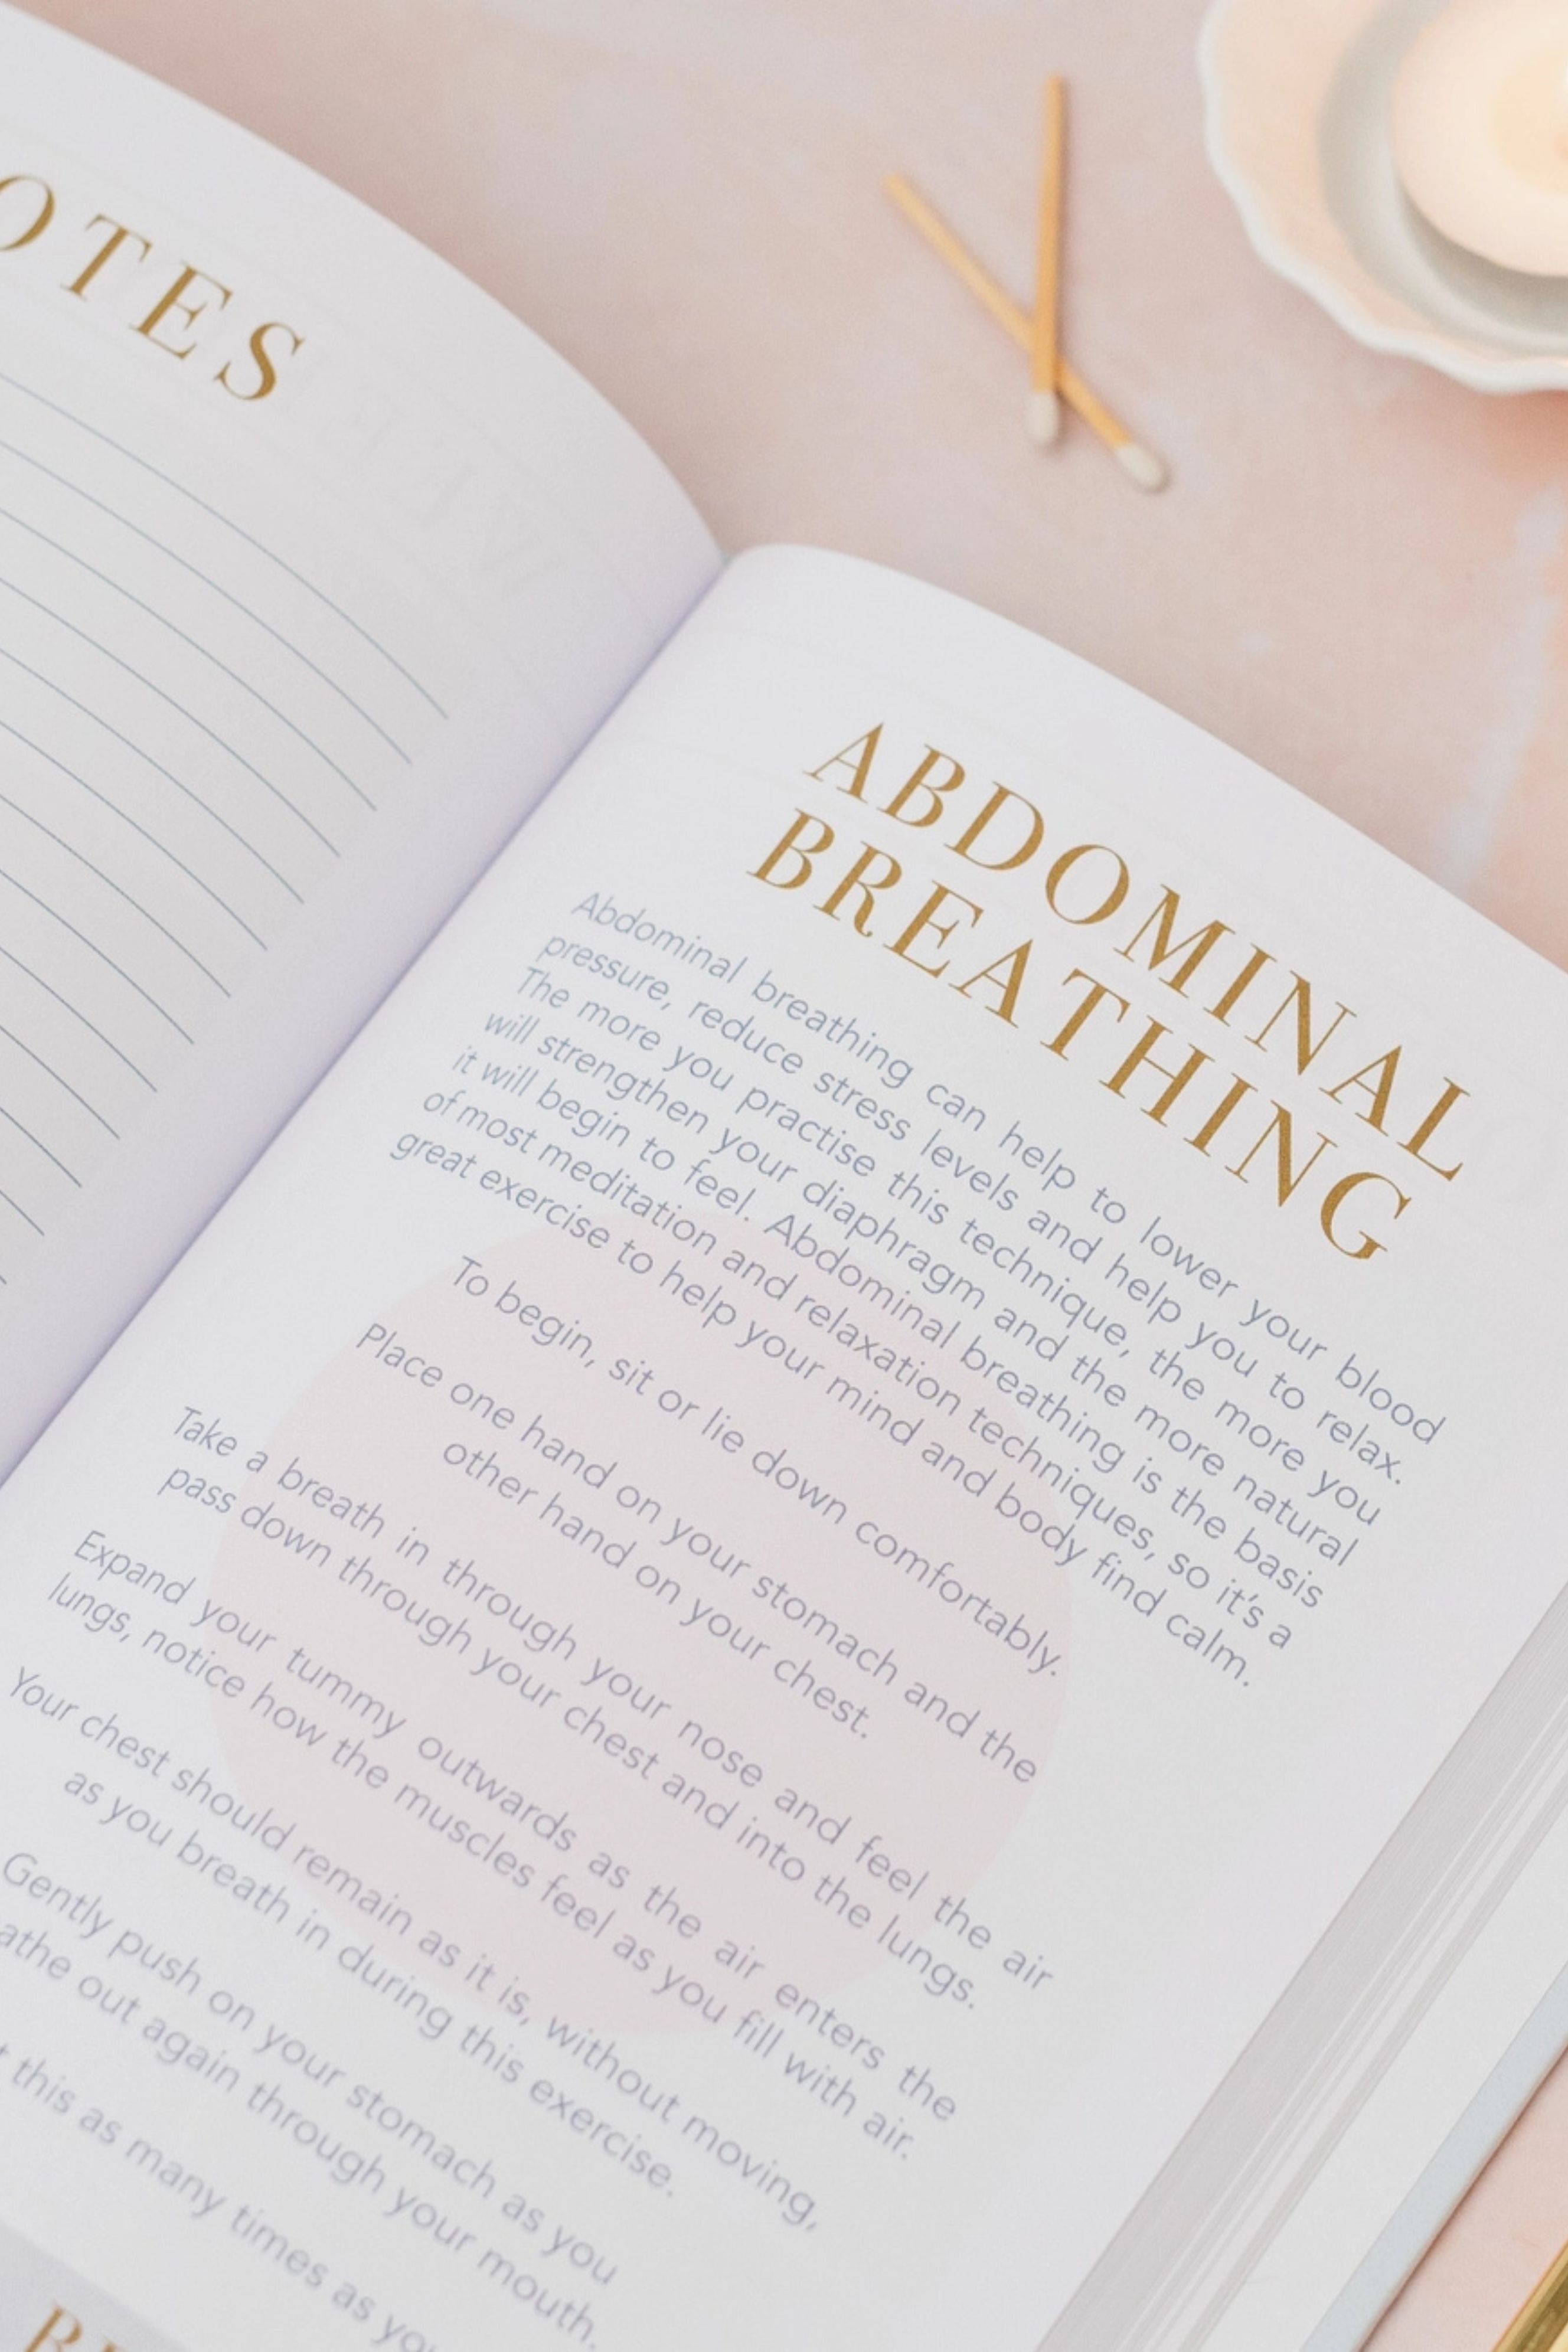 OTES
ABDOMINAL
BREATHING
Abdominal breathing can help to lower your blood
pressure, reduce stress levels and help you to relax.
The more you practise this technique, the more you
will strengthen your diaphragm and the more natural
it will begin to feel. Abdominal breathing is the basis
of most meditation and relaxation techniques, so it's a
great exercise to help your mind and body find calm.
To begin, sit or lie down comfortably.
Place one hand on your stomach and the
other hand on your chest.
Take a breath in through your nose and feel the air
pass down through your chest and into the lungs.
Expand your tummy outwards as the air enters the
lungs, notice how the muscles feel as you fill with air.
Your chest should remain as it is, without moving,
as you breath in during this exercise.
Gently push on your stomach as you
athe out again through your mouth.
this as many times as you